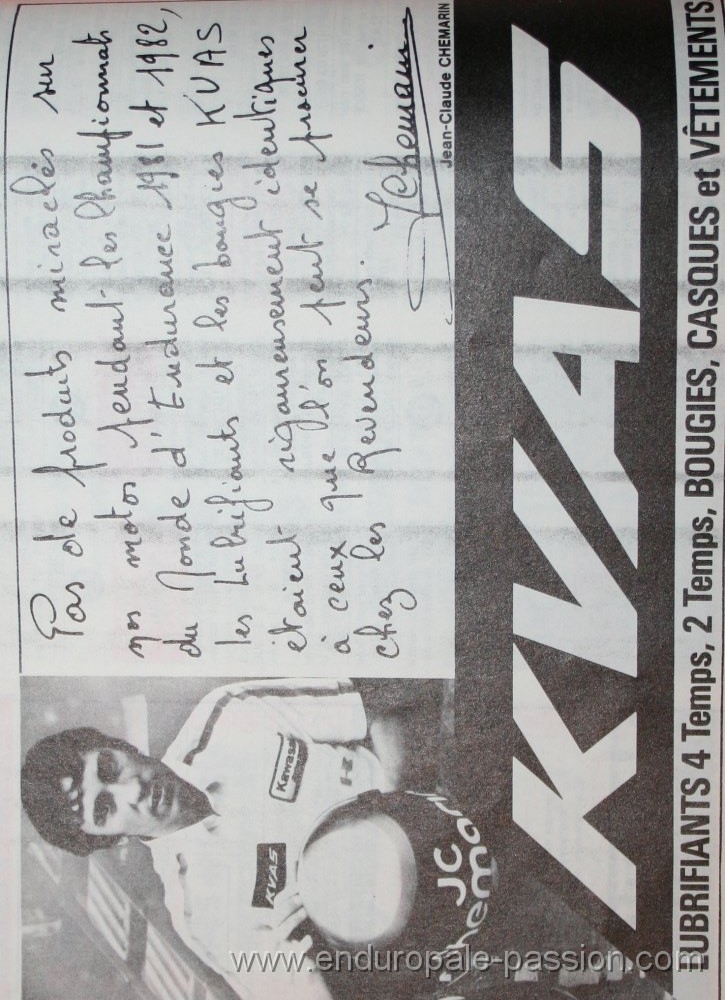 Pas de produits miracles sur
nos motos pendant les Championnats
du Monde d'Endurance 1981 et 1982,
les Lubrifiants et les bougies KVAS
étaient rigoureusement identiques
à ceux que l'on peut se procurer
chez les Revendeurs.
JChemarin
Jean-Claude CHEMARIN
Kawasaki
KVAS
JC
Chemarin
KVAS
LUBRIFIANTS 4 Temps, 2 Temps, BOUGIES, CASQUES et VÊTEMENTS
www.enduropale-passion.com